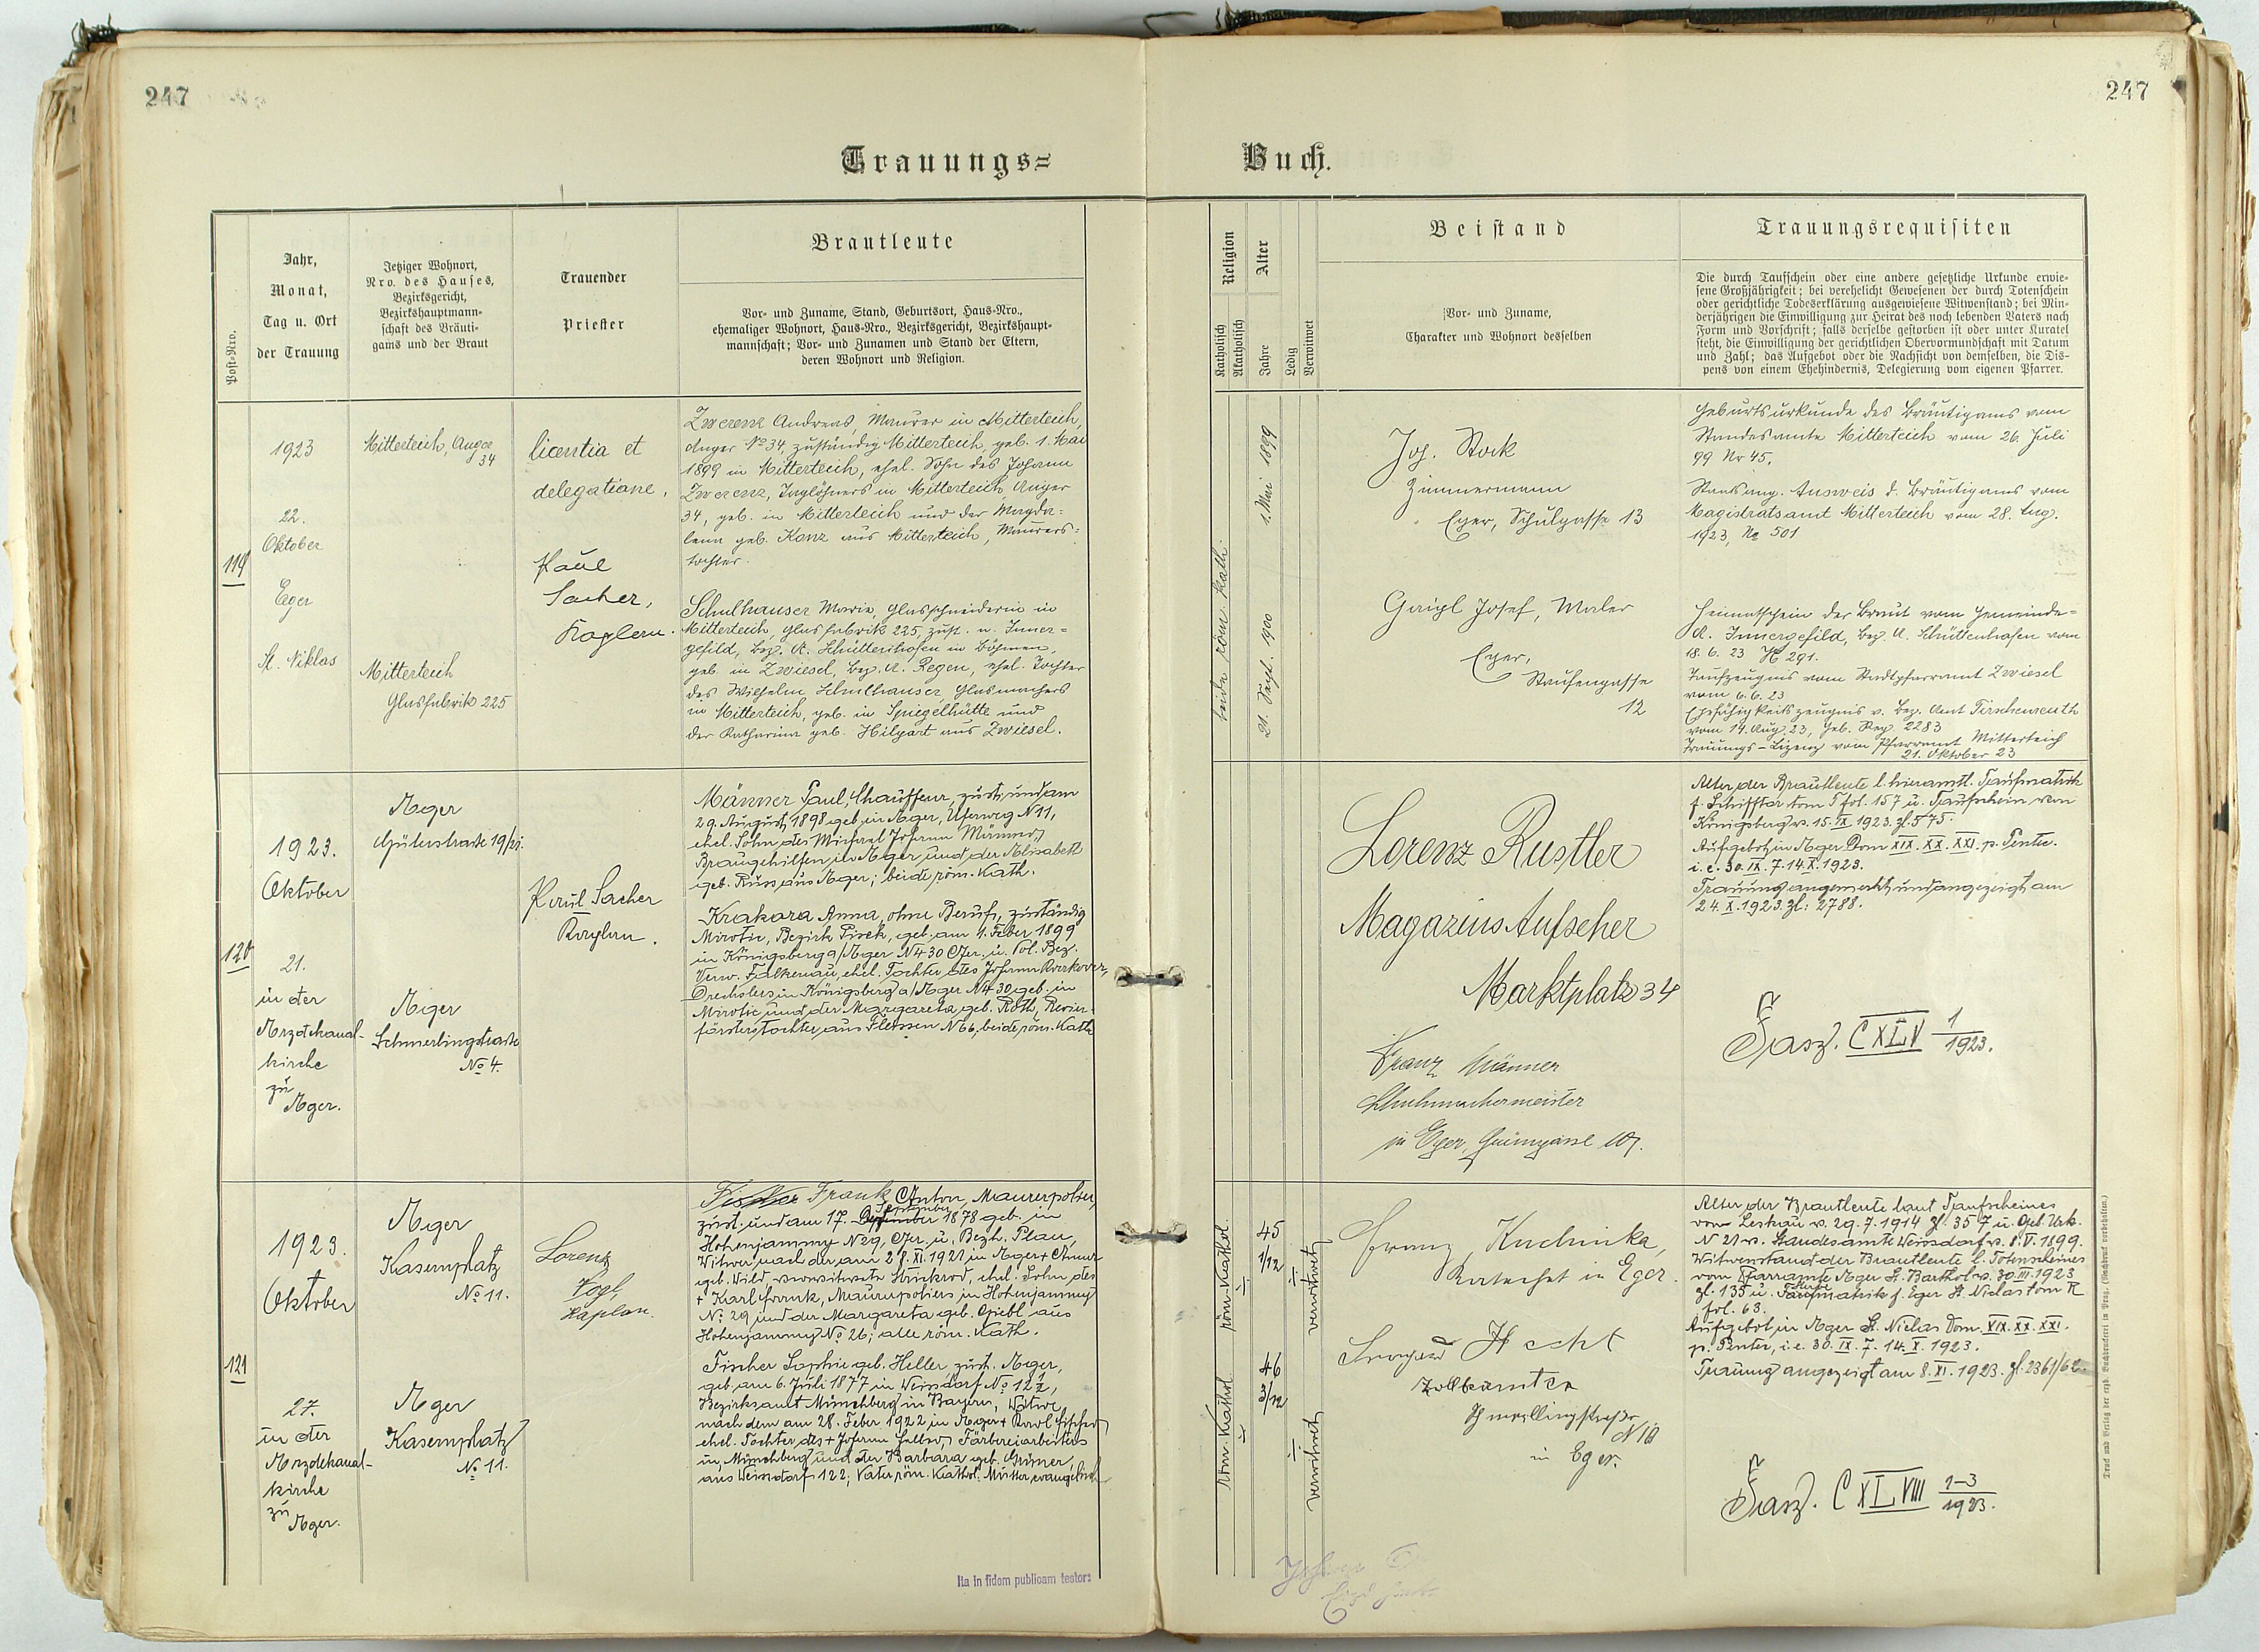 247
247
Trauungs=
Buch.
Post-Nro.
Jahr,
Monat,
Tag u. Ort
der Trauung
Jetziger Wohnort,
Nro. des Hauses,
Bezirksgericht,
Bezirkshauptmann-
schaft des Bräuti-
gams und der Braut
Trauender
Priester
Brautleute
Vor- und Zuname, Stand, Geburtsort, Haus-Nro.,
ehemaliger Wohnort, Haus-Nro., Bezirksgericht, Bezirkshaupt-
mannschaft; Vor- und Zunamen und Stand der Eltern,
deren Wohnort und Religion.
Religion
Katholisch
Akatholisch
Alter
Jahre
Ledig
Verwitwet
Beistand
Vor- und Zuname,
Charakter und Wohnort desselben
Trauungsrequisiten
Die durch Taufschein oder eine andere gesetzliche Urkunde erwie-
sene Großjährigkeit; bei verehelicht Gewesenen der durch Totenschein
oder gerichtliche Todeserklärung ausgewiesene Witwenstand; bei Min-
derjährigen die Einwilligung zur Heirat des noch lebenden Vaters nach
Form und Vorschrift; falls derselbe gestorben ist oder unter Kuratel
steht, die Einwilligung der gerichtlichen Obervormundschaft mit Datum
und Zahl; das Aufgebot oder die Nachsicht von demselben, die Dis-
pens von einem Ehehindernis, Delegierung vom eigenen Pfarrer.
119
1923
22.
Oktober
Eger
St. Niklas
Mitterteich, Anger
34
Mitterteich
Glasfabrik 225
licentia et
delegatione.
Paul
Sacher,
Kaplan.
Zwerenz Andreas, Maurer in Mitterteich,
Anger No 34, zuständig Mitterteich, geb. 1. Mai
1899 in Mitterteich, ehel. Sohn des Johann
Zwerenz, Taglöhners in Mitterteich, Anger
34, geb. in Mitterteich und der Magda-
lena geb. Konz aus Mitterteich, Maurers-
tochter.
Schulhauser Maria, Glasschneiderin in
Mitterteich, Glasfabrik 225, zust. n. Inner-
gefild, Bez. A. Schüttenhofen in Böhmen,
geb. in Zwiesel, Bez. A. Regen, ehel. Tochter
des Wilhelm Schulhauser Glasmachers
in Mitterteich, geb. in Spiegelhütte und
der Katharina geb. Hilgart aus Zwiesel.
beide röm. kath.
1. Mai 1899
21. Sept. 1900
Jos. Stock
Zimmermann
Eger, Schulgasse 13
Gaigl Josef, Maler
Eger,
Staufengasse
12
Geburtsurkunde des Bräutigams vom
Standesamte Mitterteich vom 26. Juli
99 Nr 45.
Staatsang. Ausweis d. Bräutigams vom
Magistratsamt Mitterteich vom 28. Aug.
1923, No 501
Heimatschein der Braut vom Gemeinde-
A. Innergefild, Bez. A. Schüttenhofen vom
18. 6. 23 291.
Taufzeugnis vom Stadtpfarramt Zwiesel
vom 6. 6. 23
Ehefähigkeitszeugnis v. Bez. Amt Tirschenreuth
vom 14. Aug. 23, Geb. Reg. 2283
Trauungs-Lizenz vom Pfarramt Mitterteich
21. Oktober 23
120
1923.
Oktober
21.
in der
Erzdekanal-
kirche
zu
Eger.
Eger
Schmerlingstraße
No 4.
Paul Sacher
Kaplan.
Männer Paul, Chauffeur, zust. und am
29. August 1898 geb. in Eger, Uferweg N 11,
ehel. Sohn des Michael Johann Männer
Braugehilfen in Eger und der Elisabeth
geb. Russ aus Eger; beide röm. Kath.
Krakora Anna, ohne Beruf, zuständig
Mirotic, Bezirk Pisek, geb. am 4. Feber 1899
in Königsberg a/Eger N 430 Ger. u. Pol. Bez.
Verw. Falkenau, ehel. Tochter des Johann Krakora,
Drechslers in Königsberg a/Eger N 430 geb. in
Mirotic und der Margareta geb. Roth, Revier-
försterstochter aus Flessen N 66; beide röm. Kath.
Lorenz Rustler
Magazins Aufseher
Marktplatz 34
Franz Männer
Schuhmachermeister
in Eger,
Alter der Brautleute l. hieramtl. Taufmatrik
f. tom T fol. 157 u. Taufschein von
Königsberg v. 15. IX. 1923. Zl. 575.
Aufgebot in Eger Dom XIX. XX. XXI. p. Pentec.
i. e. 30. IX. 7. 14. X. 1923.
Trauung angemerkt und angezeigt am
24. X. 1923. Zl: 2788.
Fasz. CXLV 1/1923.
121
1923.
Oktober
27.
in der
Erzdekanal-
kirche
zu
Eger.
Eger
Kasernplatz
No 11.
Eger
Kasernplatz
No 11.
Lorenz
Vogl,
Kaplan.
Fischer Frank Anton, Maurerpolier,
zust. und am 17. September 1878 geb. in
Hohenjammy N 29, Ger. u. Bezh. Plan,
Witwer nach der am 28. XI. 1921 in Eger + Anna
geb. Wild, ehel. Sohn des
+ Karl Frank, Maurerpoliers in Hohenjammy
No 29 und der Margareta geb. Giebl aus
Hohenjammy No 26; alle röm. Kath.
Fischer Sophie geb. Heller, zust. Eger,
geb. am 6. Juli 1877 in Weissdorf No 12 1/2,
Bezirksamt Münchberg in Bayern, Witwe
nach dem am 28. Feber 1922 in Eger + Karl Fischer,
ehel. Tochter des + Johann Heller, Färbereiarbeiters
in Münchberg und der Barbara geb.
aus Weissdorf 122; Vater röm. Kathol. Mutter evangelisch
röm. Kathol.
röm. Kathol.
45
1/12
46
3/12
verwitwet
verwitwet
Franz Kuchinka,
Katechet in Eger.
Hecht
Zollbeamter
Schmerlingstraße
N 10
in Eger.
Alter der Brautleute laut Taufscheines
von Leskau v. 29. 7. 1914 Zl. 357 u. Geb. Urk.
N 21 v. Standesamte Weissdorf v. 8. V. 1899.
Witwenstand der Brautleute l. Totenscheines
vom Pfarramte Eger St. Barthol. v. 30. III. 1923
Zl. 135 u. Sterbematrik f. Eger St. Niclas tom R
fol. 63.
Aufgebot in Eger St. Niclas Dom. XIX. XX. XXI.
p. Pentec. i. e. 30. IX. 7. 14. X. 1923.
Trauung angezeigt am 8. XI. 1923. Zl. 2361/62
Fasz. CXLVIII 1-3/1923.
Ita in fidem publicam testor:
Druck und Verlag der erzb. Buchdruckerei in Prag. (Nachdruck vorbehalten.)